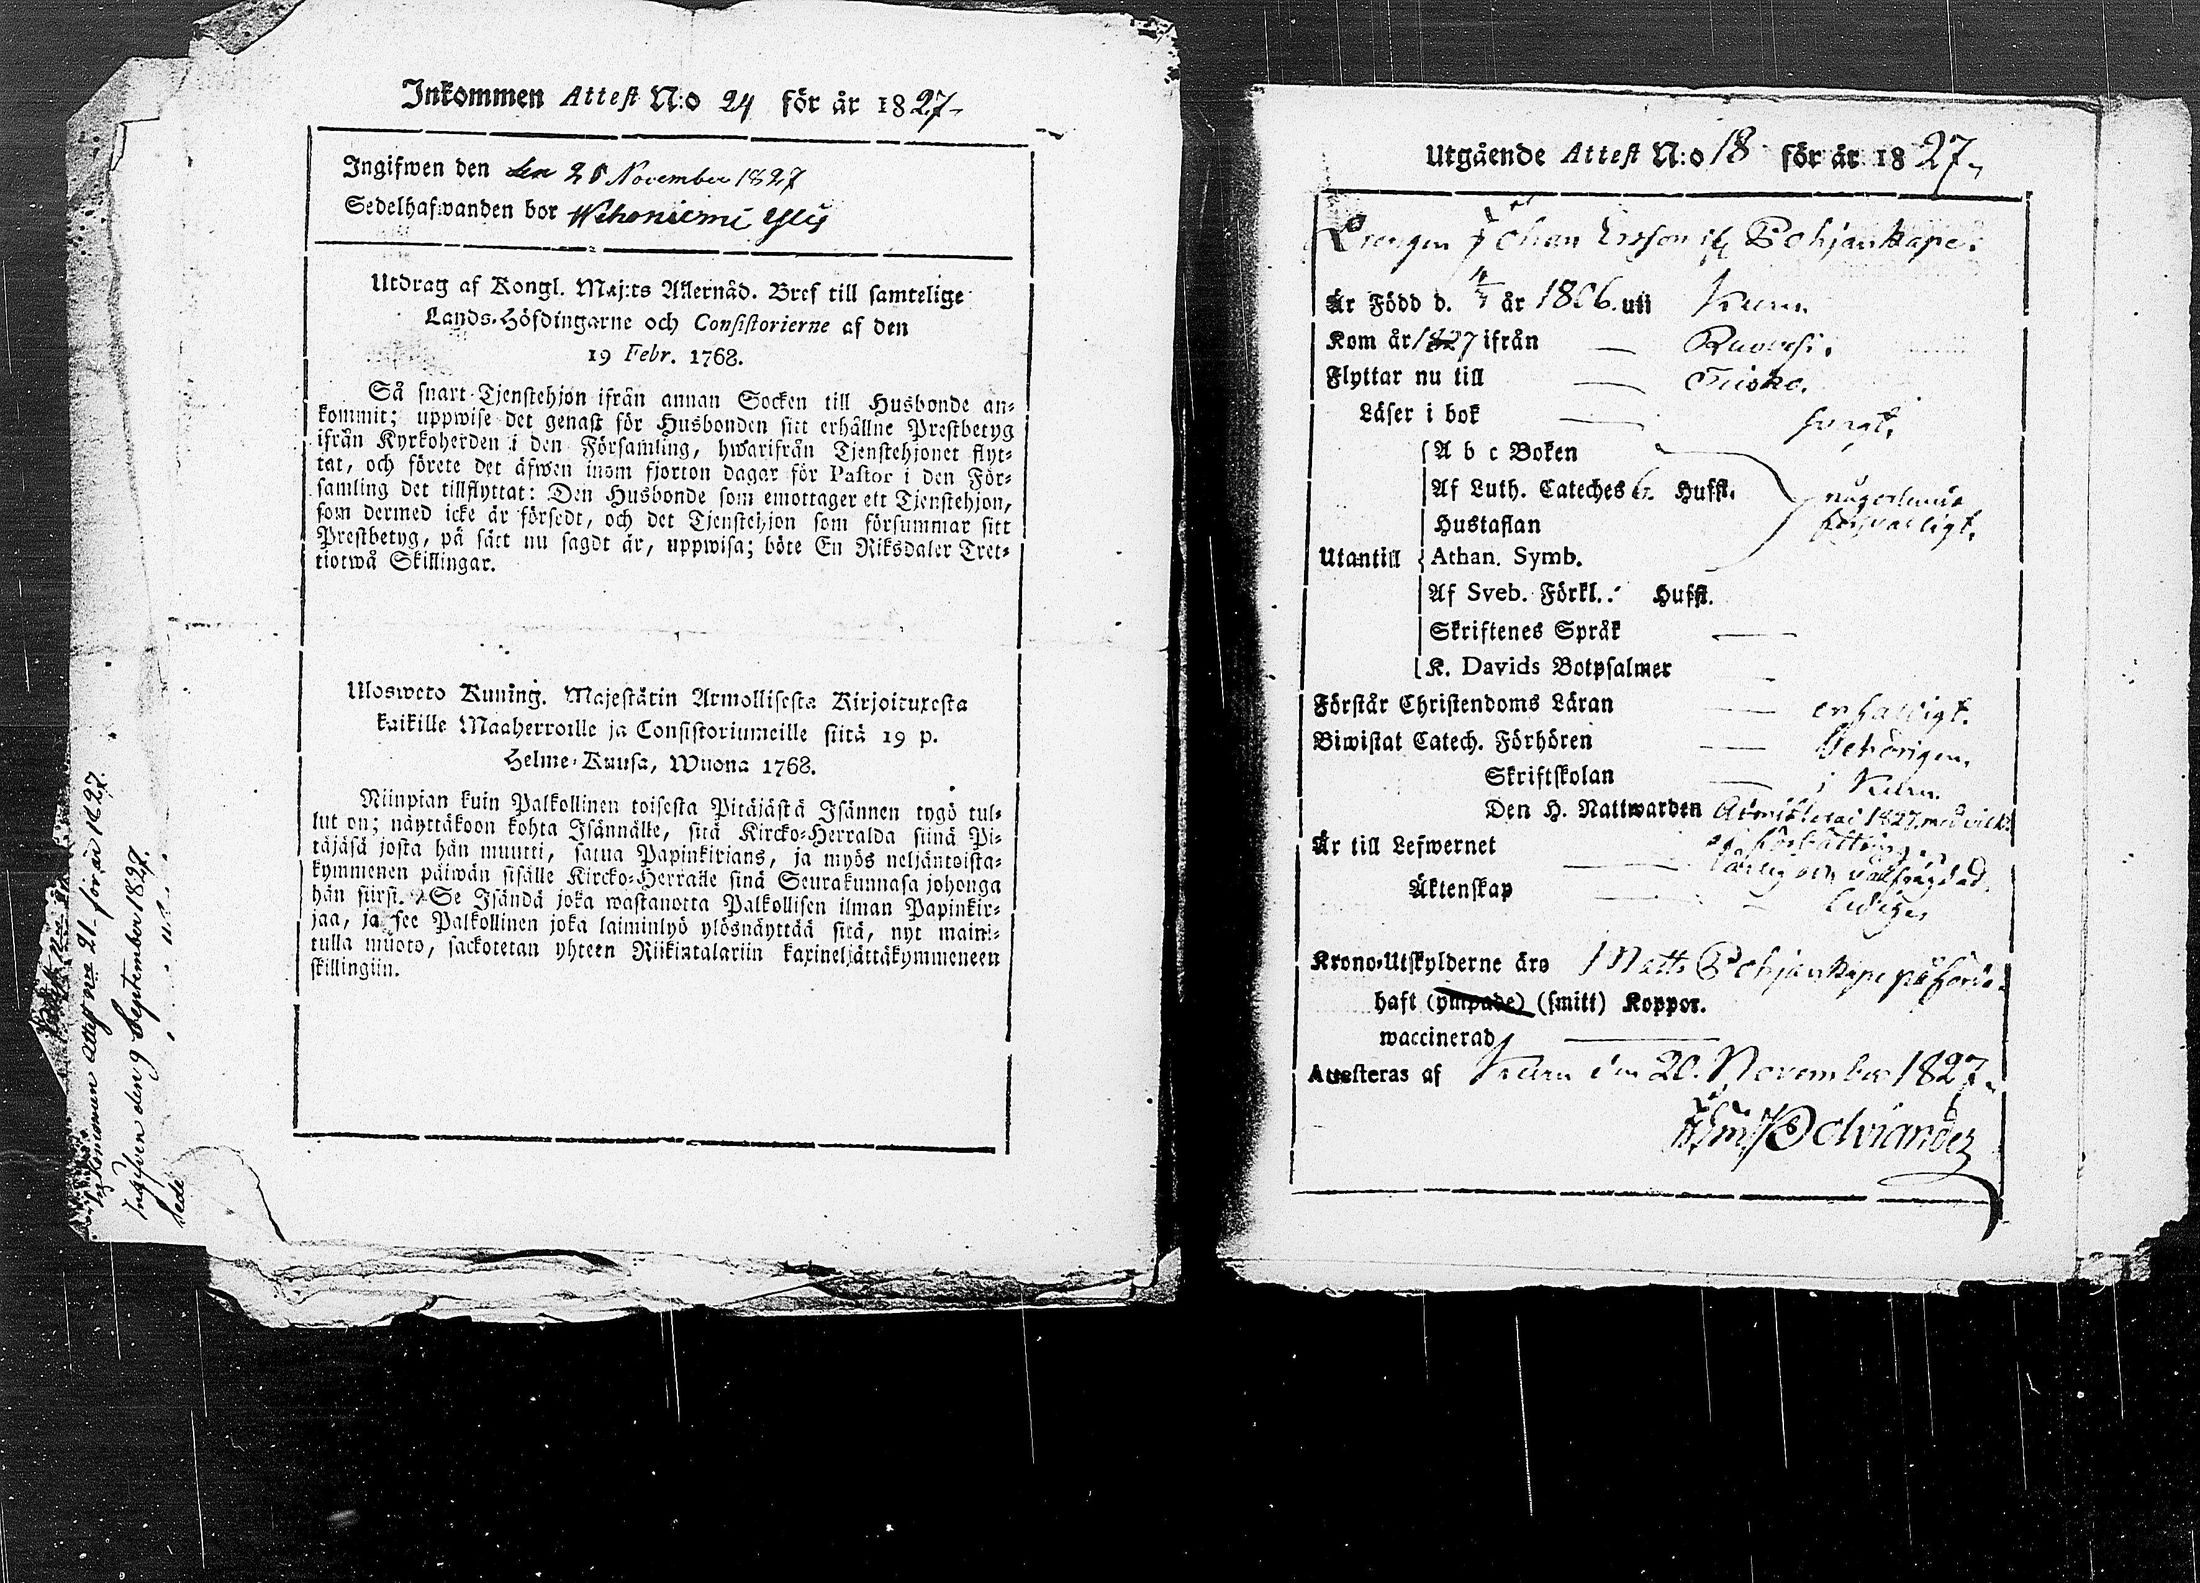 Inkommen Attest N:o 24 för år 1827
Ingifwen den den 25 November 1827
Sedelhafwanden bor Wehoniemi Yli
Utdrag af Kongl. Maj:ts Allernåd. Bref till samtelige
Lands-Höfdingarne och Consistorierne af den
19 Febr. 1768.
Så snart Tjenstehjon ifrån annan Socken till Husbonde an-
kommit; uppwise det genast för Husbonden sitt erhållne Prestbetyg
ifrån Kyrkoherden i den Församling, hwarifrån Tjenstehjonet flyt-
tat, och förete det äfwen inom fjorton dagar för Pastor i den För-
samling det tillflyttat: Den Husbonde som emottager ett Tjenstehjon,
som dermed icke är försedt, och det Tjenstehjon som försummar sitt
Prestbetyg, på sätt nu sagdt är, uppwisa; böte En Riksdaler Tret-
tiotwå Skillingar.
Ulosweto Kuning. Majestätin Armollisesta Kirjoituxesta
kaikille Maaherroille ja Consistoriumeille siitä 19 p.
Helme-Kuusa, Wuona 1768.
Niinpian kuin Palkollinen toisesta Pitäjästä Isännen tygö tul-
lut on; näyttäkoon kohta Isännälle, sitä Kircko-Herralda siinä Pi-
täjäsä josta hän muutti, satua Papinkirjans, ja myös neljäntoista-
kymmenen päiwän sisälle Kircko-Herralle siinä Seurakunnasa johonga
hän siirsi. Se Isändä joka wastanotta Palkollisen ilman Papinkir-
jaa, ja see Palkollinen joka laiminlyö ylösnäyttää sitä, nyt maini-
tulla muoto, sackotetan yhteen Riikintalariin kaxineljättäkymmeneen
skillingiin.
Inkommen attest no 21 för år 1827.
Ingifven den 9 September 1827.
Sede
Utgående Attest N:o 18 för år 1827
Drengen Johan Ersson if. Pohjankape.
Är Född d. år 1806. uti Kuru
Kom år 1827 ifrån Ruovesi.
Flyttar nu till
Läser i bok svagt.
A b c Boken
Af Luth. Cateches 6. Hufst.
Hustaflan någorlunda försvarligt.
Utantill Athan. Symb.
Af Sveb. Förkl. Hufst.
Skriftenes Språk
K. Davids Botpsalmer
Förstår Christendoms Läran enfaldigt.
Biwistat Catech. Förhören behörigen.
Skriftskolan i Kuru
Den H. Nattwarden Admitterad 1827 med vilk:
af förbättring.
Är till Lefwernet ärlig och välfrägdad.
Äktenskap Ledig
Krono-Utskylderne äro Matts Pohjankape påförde
haft (ympade) (smitt) Koppor.
waccinerad
Attesteras af Kuru den 20. November 1827
Polviander